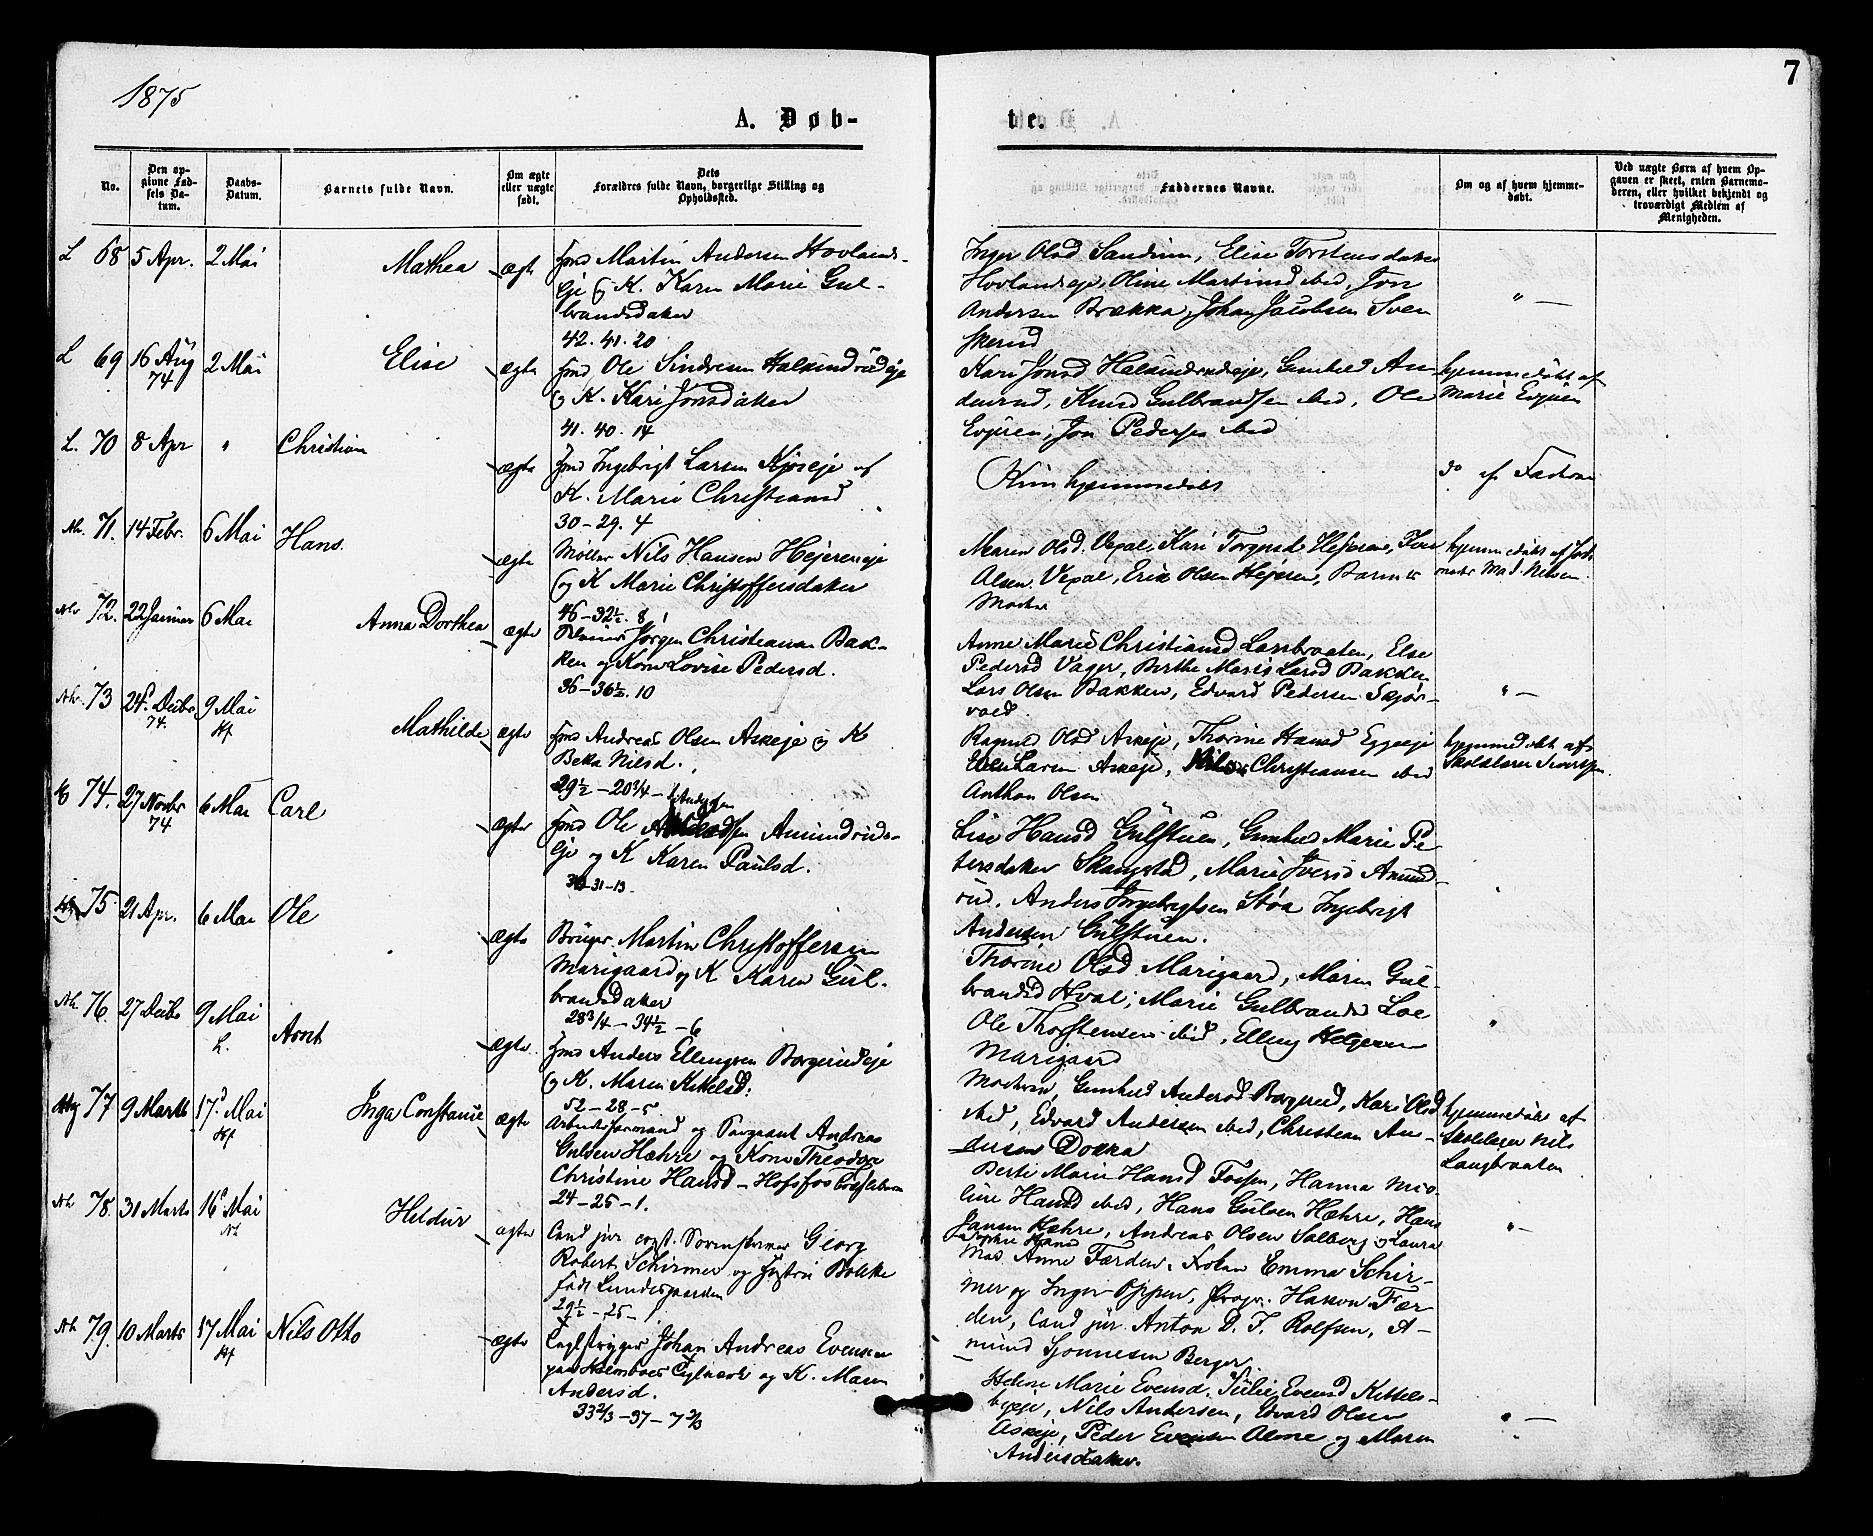 1875
7
A. Døb-
te.
No.
Den op-
givne Fød-
sels Da-
tum.
Daabs-
Datum.
Barnets fulde Navn.
Om ægte
eller uægte
født.
Dets
Forældres fulde Navn, borgerlige Stilling og
Opholdssted.
Faddernes Navne.
Om og af hvem hjemme-
døbt.
Ved uægte Børn af hvem Op-
gaven er skeet, enten Barnemo-
deren, eller hvilket bekjendt og
troværdigt Medlem af
Menigheden.
L 68 5 Apr. 2 Mai Mathea ægte
Martin Andersen Hovlands-
eje og K. Karen Marie Gul-
brandsdatter
42. 41. 20
Inger Olsd Sandum, Elise Torstensdatter
Hovlandseje, Oline Martinsd ibid, Jon
Andersen Brækka, Johan Jacobsen Sven
skerud
" —
L 69 16 Aug 2 Mai Elise ægte
74
Ole Sindresen Halsundrudeje
og K. Kari Jonsdatter
41. 40. 14
Kari Jonsd Halsundrudeje, Gunhild An
derud, Knud Gulbrandsen ibid, Ole
Evjuen, Jon Pedersen ibid
hjemmedøbt af
Marie Evjuen
L. 70 8 Apr " Christian ægte
Ingebrigt Larsen Kjøseje og
K. Marie Christiansd
30 - 29. 4
Kun hjemmedøbt
do af Faderen
Nh. 71. 14 Febr. 6 Mai Hans. ægte
Møller Nils Hansen Hejereneje
og K Marie Christoffersdatter
46 - 32½ . 8
Maren Olsd. Vexal, Kari Torgersd Hejeren,
Olsen Vexal, Erik Olsen Hejeren, Barnets
Moder
hjemmedøbt af Jord-
moder Mad. Nilsen.
Nh 72. 22 Januar 6 Mai Anna Dorthea ægte
Jørgen Christiansen Bak-
ken og Kone Lovise Pedersd.
36 - 36½ . 10
Anne Marie Christiansd Lambraaten, Else
Pedersd Vager, Berthe Marie Larsd Bakken
Lars Olsen Bakken, Edvard Pedersen
" —
Nh. 73 24 Decbr 9 Mai Mathilde ægte
74. Hf
Andreas Olsen Askeje og K
Beka Nilsd.
29½ - 20¾ - 1
Ragnild Olsd Askeje, Thorine Hansd Eggeeje
Larsen Askeje, Nils Christiansen ibid
Anthon Olsen
hjemmedøbt af
Skolelærer Sivertsen.
74. 27 Novbr 6 Mai Carl ægte
74
Andersen
Ole Amundruds-
eje og K Karen Paulsd.
36-31-13
Lise Hansd Gulstuen, Gunhild Marie Pe
tersdatter Skaugstad, Marie Iversd Amund-
rud. Anders Ingebrigtsen Støa Ingebrigt
Andersen Gulstuen.
75 21 Apr. 6 Mai Ole ægte
Bruger Martin Christoffersen
Marigaard og K Karen Gul-
brandsdatter
28¾ - 34½ - 6
Thorine Olsd Marigaard, Maren Gul-
brandsd Hval, Marie Gulbrandsd Loe
Ole Thorstensen ibid, Elling Helgesen
Marigaard
"
Nh. 76. 27 Decbr 9 Mai Arnt ægte
L.
Anders Ellingsen Borgerudeje
og K. Maren Kittelsd.
52 - 28 - 5.
Moderen, Gunhild Andersd Borgerud, Kari Olsd
ibid, Edvard Andersen ibid, Christian An-
dersen Dokka
hjemmedøbt af
Skolelærer Nils
Langbraaten
77 9 Marts 17d Mai Inga Constanse ægte
Hf
Arbeidsformand og Sergeant Andreas
Gulsen Hæhre og Kone Theodora
Christine Hansd - Hofsfos
24 - 25 - 1.
Berte Marie Hansd Fossen, Hanna Mio-
line Hansd ibid, Hans Gulsen Hæhre, Hans
Jansen Hæhre, Andreas Olsen Solberg og Laura
Hansd
" —
Nh 78. 31 Marts 16d Mai Heldur ægte
Nh
Cand jur const. Sorenskriver Georg
Robert Schirmer og Hustru Bolette
født Lundesgaarden
29½ - 25 - 1.
Mad Anne Færden, Frøken Emma Schir-
mer og Inger Oppen, Propr. Hakon Fær
den, Cand jur. Anton D. F. Rolfsen, A-
mund Gjonnesen Berger.
Nh 79. 10 Marts 17 Mai Nils Otto ægte
Hf
Teglstryger Johan Andreas Evensen
Teglværk og K. Maren
Andersd.
33⅔ - 37 - 7⅔
Helene Marie Evensd. Julie Evensd Kittels-
bygge, Nils Andersen, Edvard Olsen
Askeje, Peder Evensen Alme og Maren
Andersdatter.
" —